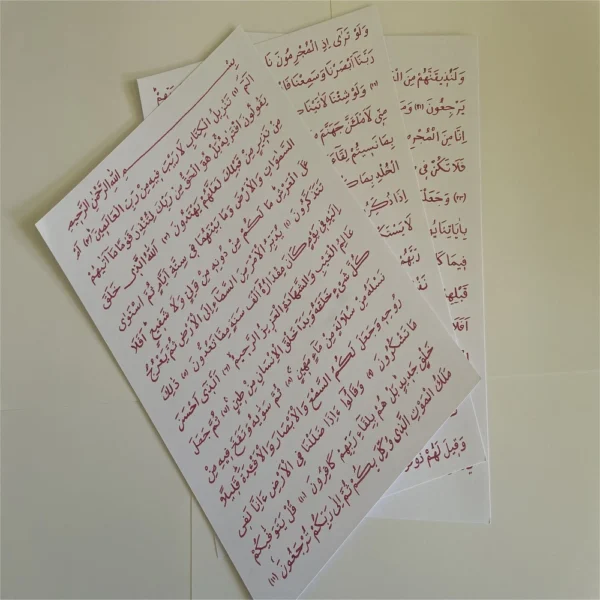 بِسْمِ اللّٰهِ الرَّحْمٰنِ الرَّحِيمِ
الٓمٓ (١) تَنْزِيلُ الْكِتَابِ لَا رَيْبَ فِيهِ مِنْ رَبِّ الْعَالَمِينَ (٢) أَمْ
يَقُولُونَ افْتَرٰيهُ بَلْ هُوَ الْحَقُّ مِنْ رَبِّكَ لِتُنْذِرَ قَوْمًا مَا أَتٰيهُمْ
مِنْ نَذِيرٍ مِنْ قَبْلِكَ لَعَلَّهُمْ يَهْتَدُونَ (٣) اَللّٰهُ الَّذِي خَلَقَ
السَّمٰوَاتِ وَالْأَرْضَ وَمَا بَيْنَهُمَا فِي سِتَّةِ أَيَّامٍ ثُمَّ اسْتَوٰى
عَلَى الْعَرْشِ مَا لَكُمْ مِنْ دُونِهِ مِنْ وَلِيٍّ وَلَا شَفِيعٍ أَفَلَا
تَتَذَكَّرُونَ (٤) يُدَبِّرُ الْأَمْرَ مِنَ السَّمَاءِ إِلَى الْأَرْضِ ثُمَّ يَعْرُجُ
إِلَيْهِ فِي يَوْمٍ كَانَ مِقْدَارُهُ أَلْفَ سَنَةٍ مِمَّا تَعُدُّونَ (٥) ذٰلِكَ
عَالِمُ الْغَيْبِ وَالشَّهَادَةِ الْعَزِيزُ الرَّحِيمُ (٦) اَلَّذِي أَحْسَنَ
كُلَّ شَيْءٍ خَلَقَهُ وَبَدَأَ خَلْقَ الْإِنْسَانِ مِنْ طِينٍ (٧) ثُمَّ جَعَلَ
نَسْلَهُ مِنْ سُلَالَةٍ مِنْ مَاءٍ مَهِينٍ (٨) ثُمَّ سَوّٰيهُ وَنَفَخَ فِيهِ مِنْ
رُوحِهِ وَجَعَلَ لَكُمُ السَّمْعَ وَالْأَبْصَارَ وَالْأَفْئِدَةَ قَلِيلًا
مَا تَشْكُرُونَ (٩) وَقَالُوا ءَاِذَا ضَلَلْنَا فِي الْأَرْضِ ءَاِنَّا لَفِي
خَلْقٍ جَدِيدٍ بَلْ هُمْ بِلِقَاءِ رَبِّهِمْ كَافِرُونَ (١٠) قُلْ يَتَوَفّٰيكُمْ
مَلَكُ الْمَوْتِ الَّذِي وُكِّلَ بِكُمْ ثُمَّ إِلٰى رَبِّكُمْ تُرْجَعُونَ (١١)
وَلَوْ تَرٰى إِذِ الْمُجْرِمُونَ نَا
رَبَّنَا أَبْصَرْنَا وَسَمِعْنَا فَا
(١٢) وَلَوْ شِئْنَا لَآتَيْنَا
مِنِّي لَأَمْلَأَنَّ جَهَنَّمَ
بِمَا نَسِيتُمْ لِقَاءَ
الْخُلْدِ بِمَا كُ
إِذَا ذُكِّرُ
لَا يَسْتَكْ
رَبَّهُمْ
وَقِيلَ لَهُمْ ذُوقُو
وَلَنُذِيقَنَّهُمْ مِنَ الْ
يَرْجِعُونَ (٢١) وَمَ
إِنَّا مِنَ الْمُجْرِ
فَلَا تَكُنْ فِي
(٢٣) وَجَعَلْ
بِاٰيَاتِنَا يُو
فِيمَا كَ
قَبْلِهِمْ
أَفَلَا